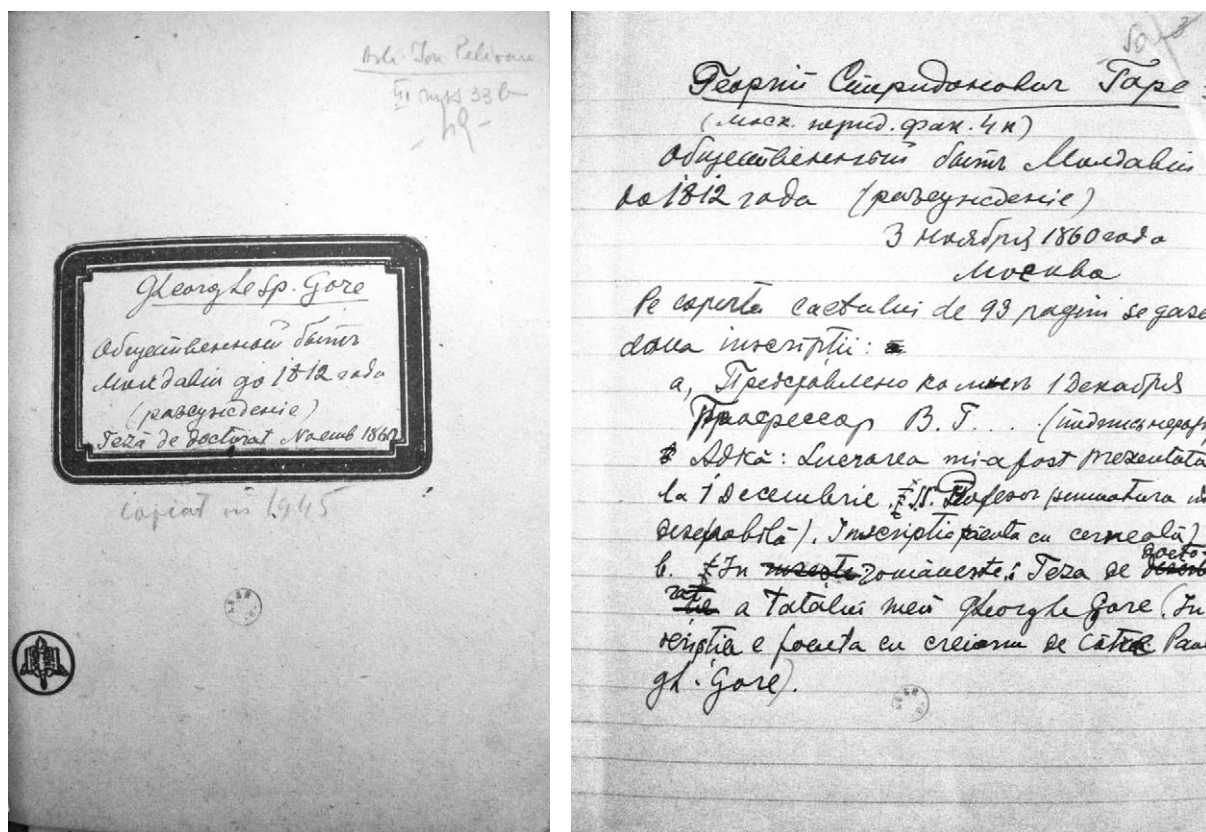 Arh. Ion Pelivan
III mss 33 b
Gheorghe Sp. Gore
Общественный бытъ
Молдавии до 1812 года
(разсуждение)
Teză de doctorat Noemb 1860
copiat în 1945
Георгий Спиридонович Горе
(моск. юрид. фак. 4 к)
Общественный бытъ Молдавии
до 1812 года (разсуждение)
3 ноября 1860 года
Москва
Pe coperta caetului de 93 pagini se gase
doua inscripții:
a, Представлено ко мнѣ 1 Декабря
Профессор В. Г. . . . (подпись нераз
Adkă: Lucrarea mi-a fost prezentată
la 1 Decembrie, ss. Profesor (semnatura in
descifrabilă). Inscriptie făcuta cu cerneală)
b. In românește: Teza de docto-
rat a tatălui meu Gheorghe Gore (In
scriptia e facuta cu creionu de către Pavel
Gh. Gore).